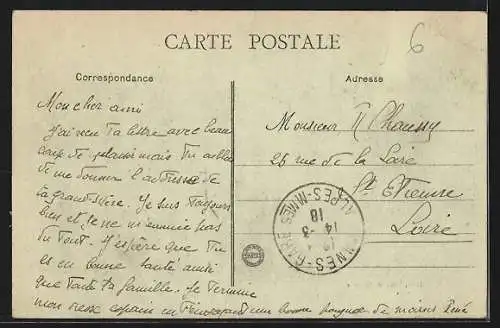 6
CARTE POSTALE
Correspondance
Adresse
Mon cher ami
J'ai reçu ta lettre avec beau
coup de plaisir mais tu oublie
de me donner l'adresse de
ta grand'mère. Je suis toujours
bien et je ne m'ennuie pas
du tout. J'espère que tu
es en bonne santé ainsi
que toute ta famille. Je termine
mon vieux copain en t'envoyant une bonne poignée de mains René
Monsieur Chaussy
26 rue de la Loire
St Etienne
Loire
NNES-GARE
ALPES-MMES
14-3
18